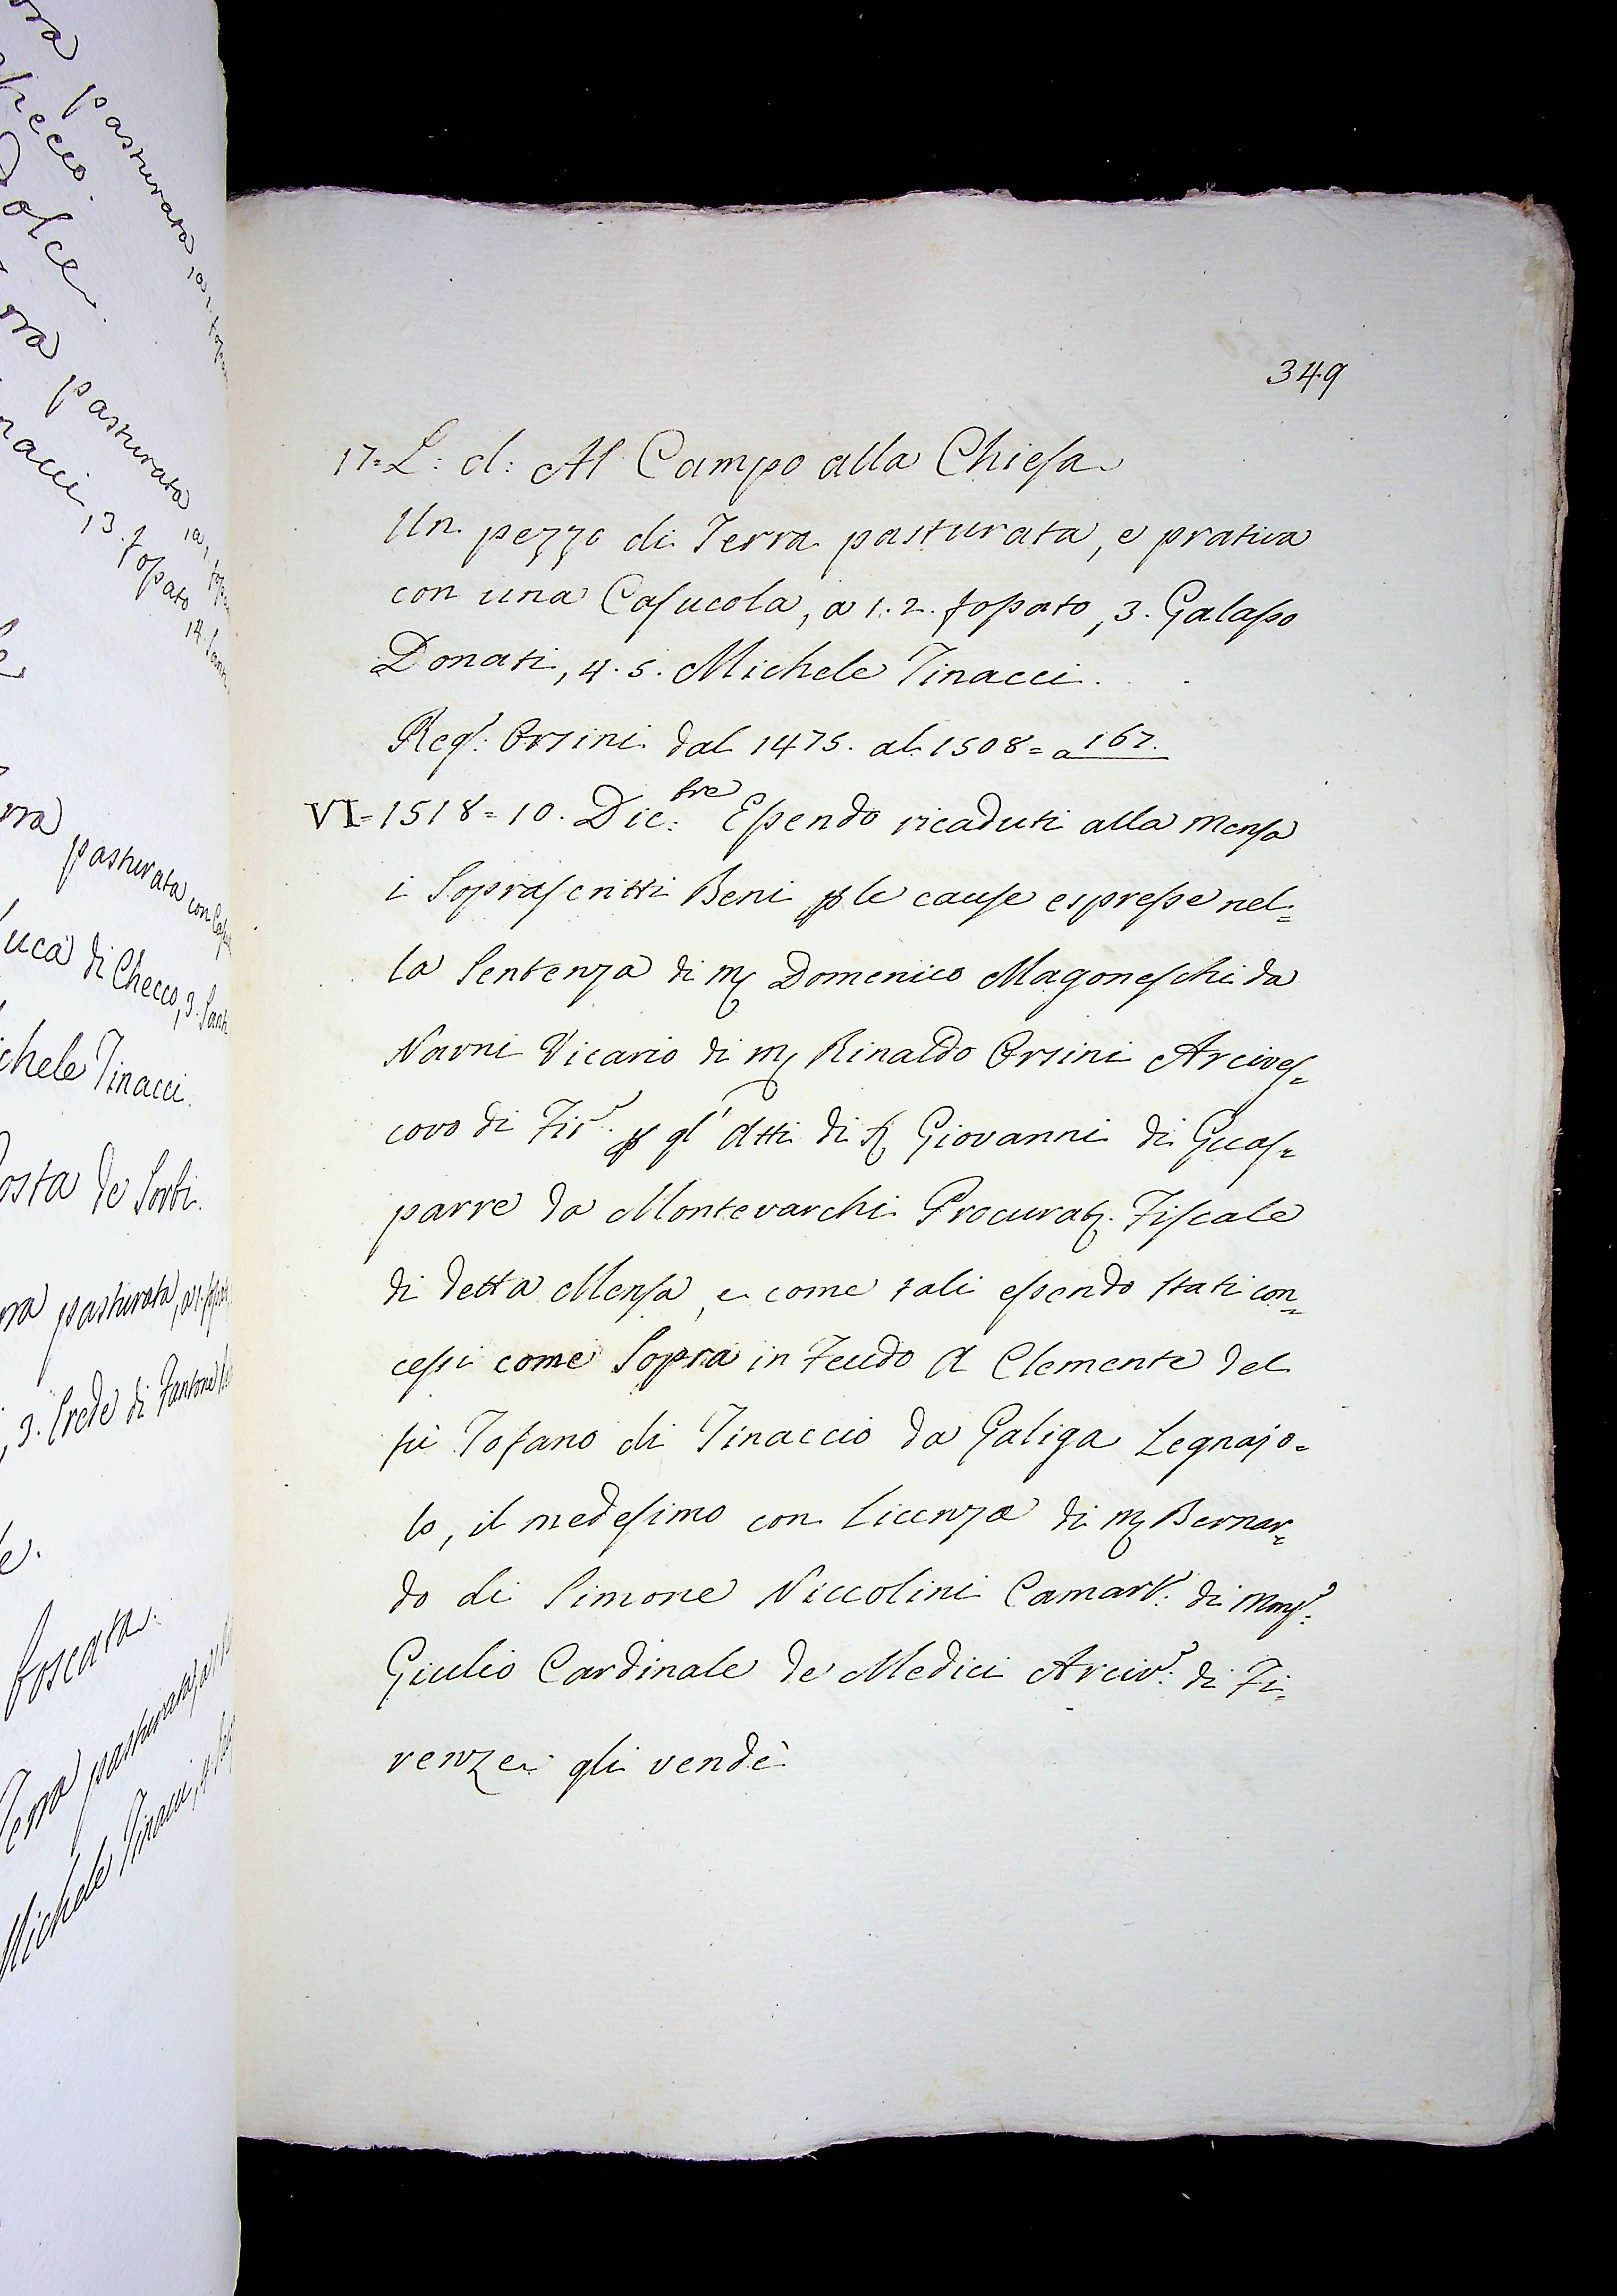 349
17= L: d: Al Campo alla Chiesa
Un pezzo di Terra pasturata, e prativa
con una Casucola, a 1. 2. fossato, 3. Galasso
Donati, 4. 5. Michele Tinacci.
Regº. Orsini dal 1475. al 1508= a 167.
VI= 1518= 10. Dic:bre Essendo ricaduti alla Mensa
i Soprascritti Beni p le cause espresse nel=
la Sentenza di mſ Domenico Magoneschi da
Narni Vicario di mſ Rinaldo Orsini Arcives=
covo di Firᵉ. p gl' Atti di ſ Giovanni di Guas=
parre da Montevarchi Procurat. Fiscale
di detta Mensa, e come tali essendo stati con=
cessi come Sopra in Feudo A Clemente del
fù Tofano di Tinaccio da Galiga Legnajo=
lo, il medesimo con Licenza di mſ Bernar=
do di Simone Niccolini Camarlº. di Monsʳ.
Giulio Cardinale de Medici Arcivº. di Fi=
renze gli vendè
pasturata
pasturata
3. fossato
pasturata con
di Checco, 3.
Tinacci.
de Sorbi.
pasturata,
, 3. Erede di Fantone
boscata.
Terra pasturata,
Michele Tinacci, 4.